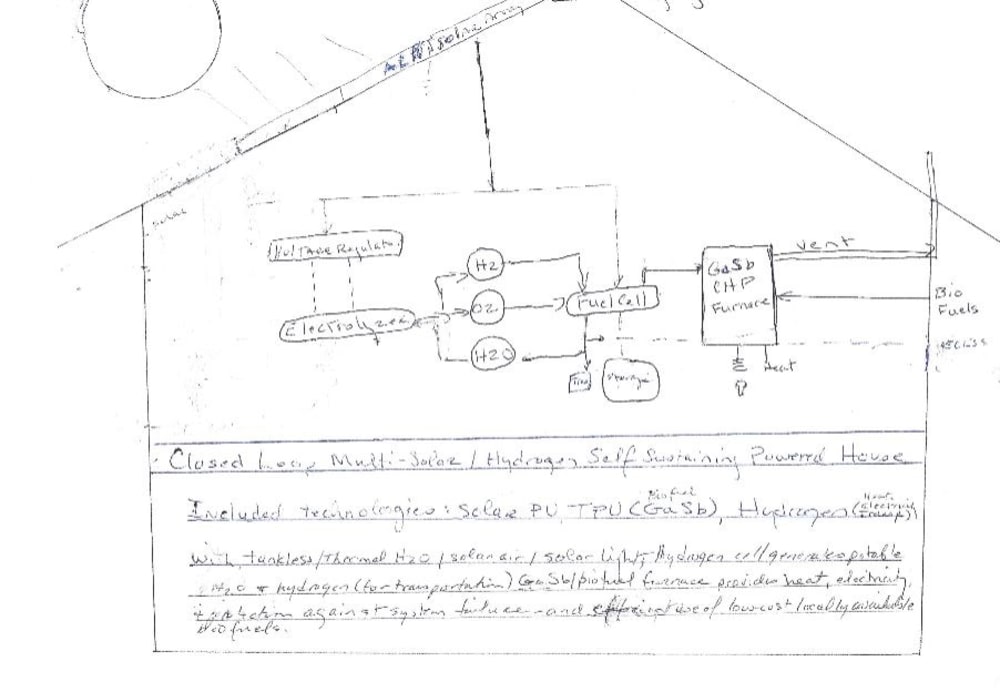 Solar Array
solar
Voltage Regulator
Electrolyzer
H2
O2
H2O
Fuel Cell
Storage
GaSb
CHP
Furnace
Vent
Bio
Fuels
Heat
Closed Loop Multi-Solar / Hydrogen Self Sustaining Powered House
Biofuel
Included technologies: Solar PV, TPV (GaSb), Hydrogen (Heat,
with tankless/thermal H2O / solar air / solar light, Hydrogen cell generates potable
H2O + hydrogen (for transportation) GaSb/biofuel furnace provides heat, electricity,
protection against system failure and efficient use of low-cost locally available
biofuels.